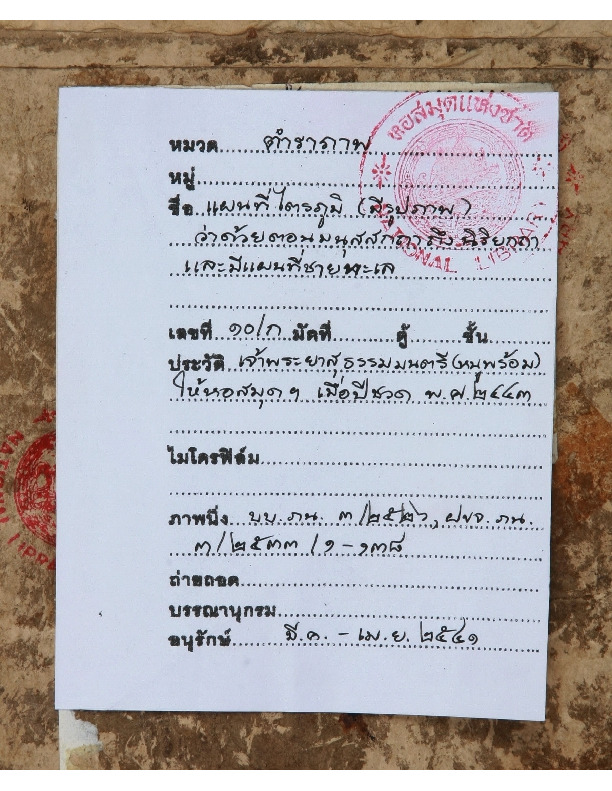 หอสมุดแห่งชาติ
NATIONAL LIBRARY
หมวด ตำราภาพ
หมู่
ชื่อ แผนที่ไตรภูมิ (มีรูปภาพ)
ว่าด้วยตอนมนุสสกถา ถึง นิริยกถา
และมีแผนที่ชายทะเล
เลขที่ ๑๐/ก มัดที่ ตู้ ชั้น
ประวัติ เจ้าพระยาสุธรรมมนตรี (หนูพร้อม)
ให้หอสมุดฯ เมื่อปีชวด พ.ศ. ๒๔๔๓
ไมโครฟิล์ม
ภาพนิ่ง บบ. ภน. ๓/๒๕๒๖, ฝขจ. ภน.
๓/๒๕๓๓/๑-๑๓๘
ถ่ายถอด
บรรณานุกรม
อนุรักษ์ มี.ค. - เม.ย. ๒๕๔๑